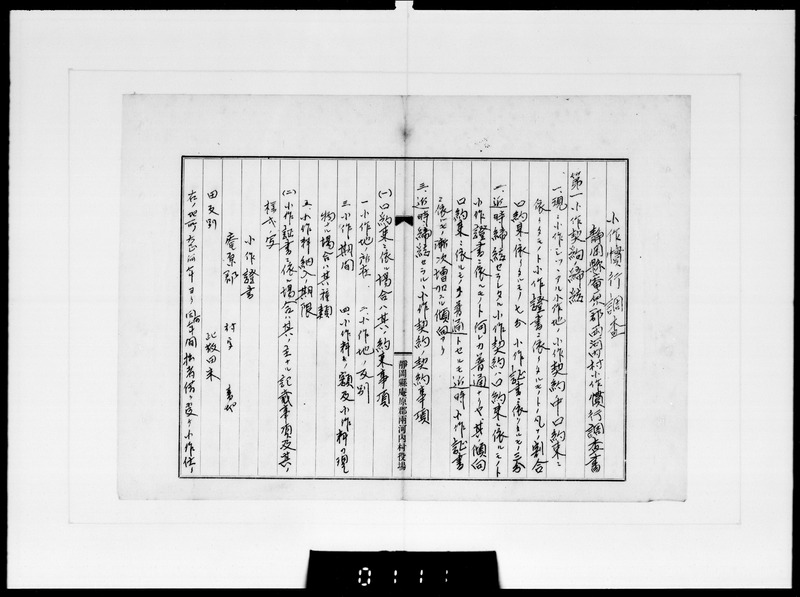 小作慣行調査
静岡縣庵原郡両河内村小作慣行調査書
第一小作契約締結
一、現ニ小作シツヽアル小作地ノ小作契約中口約束ニ
依リタルモノト小作證書ニ依リタルモノトノ凡ソノ割合
口約束ニ依リタルモノ七分 小作証書ニ依リタルモノ三分
二、近時締結セラレタル小作契約ハ口約束ニ依ルモノト
小作證書ニ依ルモノト何レカ普通ナリヤ、其ノ傾向
口約束ニ依ルモノヲ普通トセルモ近時小作証書
ニ依ルモノ漸次増加スル傾向アリ
三、近時締結セラルヽ小作契約ノ契約事項
(一)口約束ニ依ル場合ハ其ノ約束事項
一小作地ノ所在 二小作地ノ反別
三小作期間 四小作料ノ額及小作料カ現
物ナル場合ハ其ノ種類
五、小作料納入ノ期限
(二)小作証書ニ依ル場合ハ其ノ主ナル記載事項及其ノ
様式ノ写
小作證書
庵原郡 村 字
田反別 此敷田米
右ノ地所大正 年ヨリ 年間拙者 小作仕
靜岡縣庵原郡兩河内村役場
01111